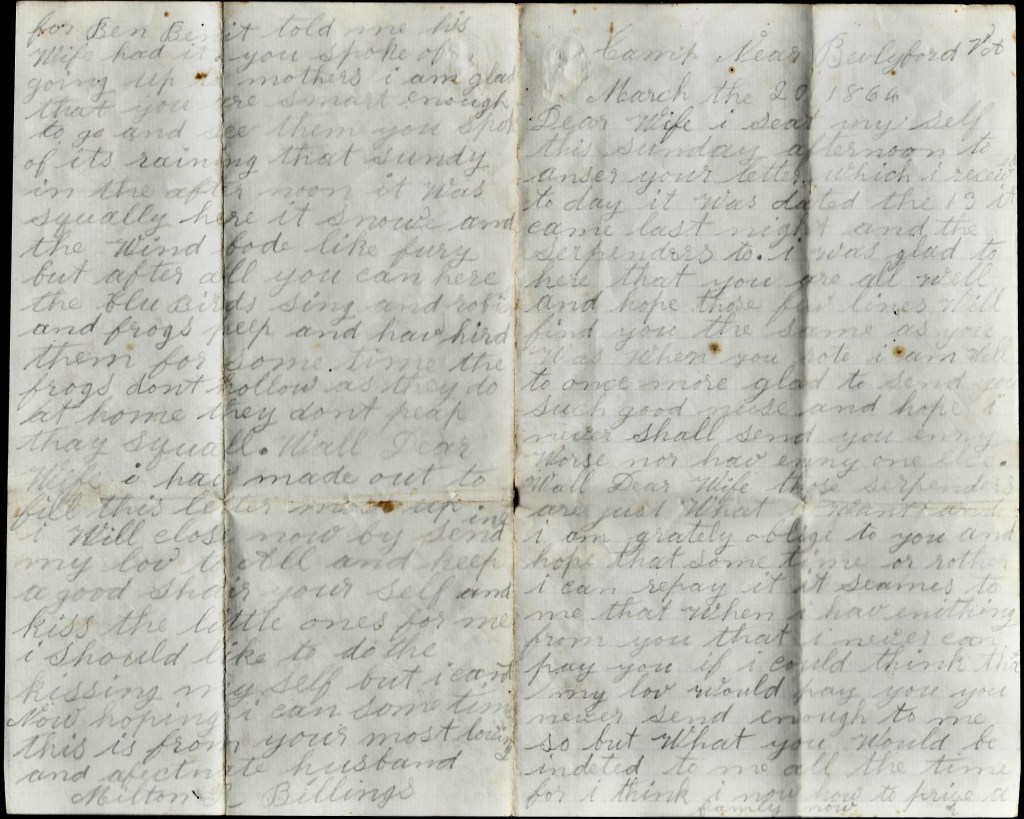 Camp Near Bevlyford Vet
March the 20 1864
Dear Wife i seat my self
this sunday afternoon to
anser your letter which i receiv
to day it was dated the 13 it
came last night and the
serpenders to. i was glad to
here that you are all well
and hope those few lines will
find you the same as you
was when you rote i am well
to once more glad to send you
such good nuse and hope i
never shall send you enny
worse nor hav enny one else.
Wall Dear Wife those serpenders
are just What i want and
i am grately oblige to you and
hope that some time or rother
i can repay it it seames to
me that When i hav enithing
from you that i never can
pay you if i could think that
my lov would pay you you
never send enough to me
so but What you Would be
indeted to me all the time
for i think i now how to prize a
family now
for Ben Benit told me his
Wife had it you spoke of
going up to mothers i am glad
that you are smart enough
to go and see them you spok
of its raining that sundy
in the after noon it Was
squally here it snowe and
the Wind bode like fury
but after all you can here
the blu Birds sing and robis
and frogs peep and hav hird
them for some time the
frogs dont hollow as they do
at home they dont peap
thay squall. Wall Dear
Wife i hav made out to
fill this letter most up
i Will close now by sending
my lov to All and keep
a good shair your self and
kiss the little ones for me
i should like to do the
kissing my self but i cant
Now hoping i can some time
this is from your most loving
and afectnate husband
Milton Billings